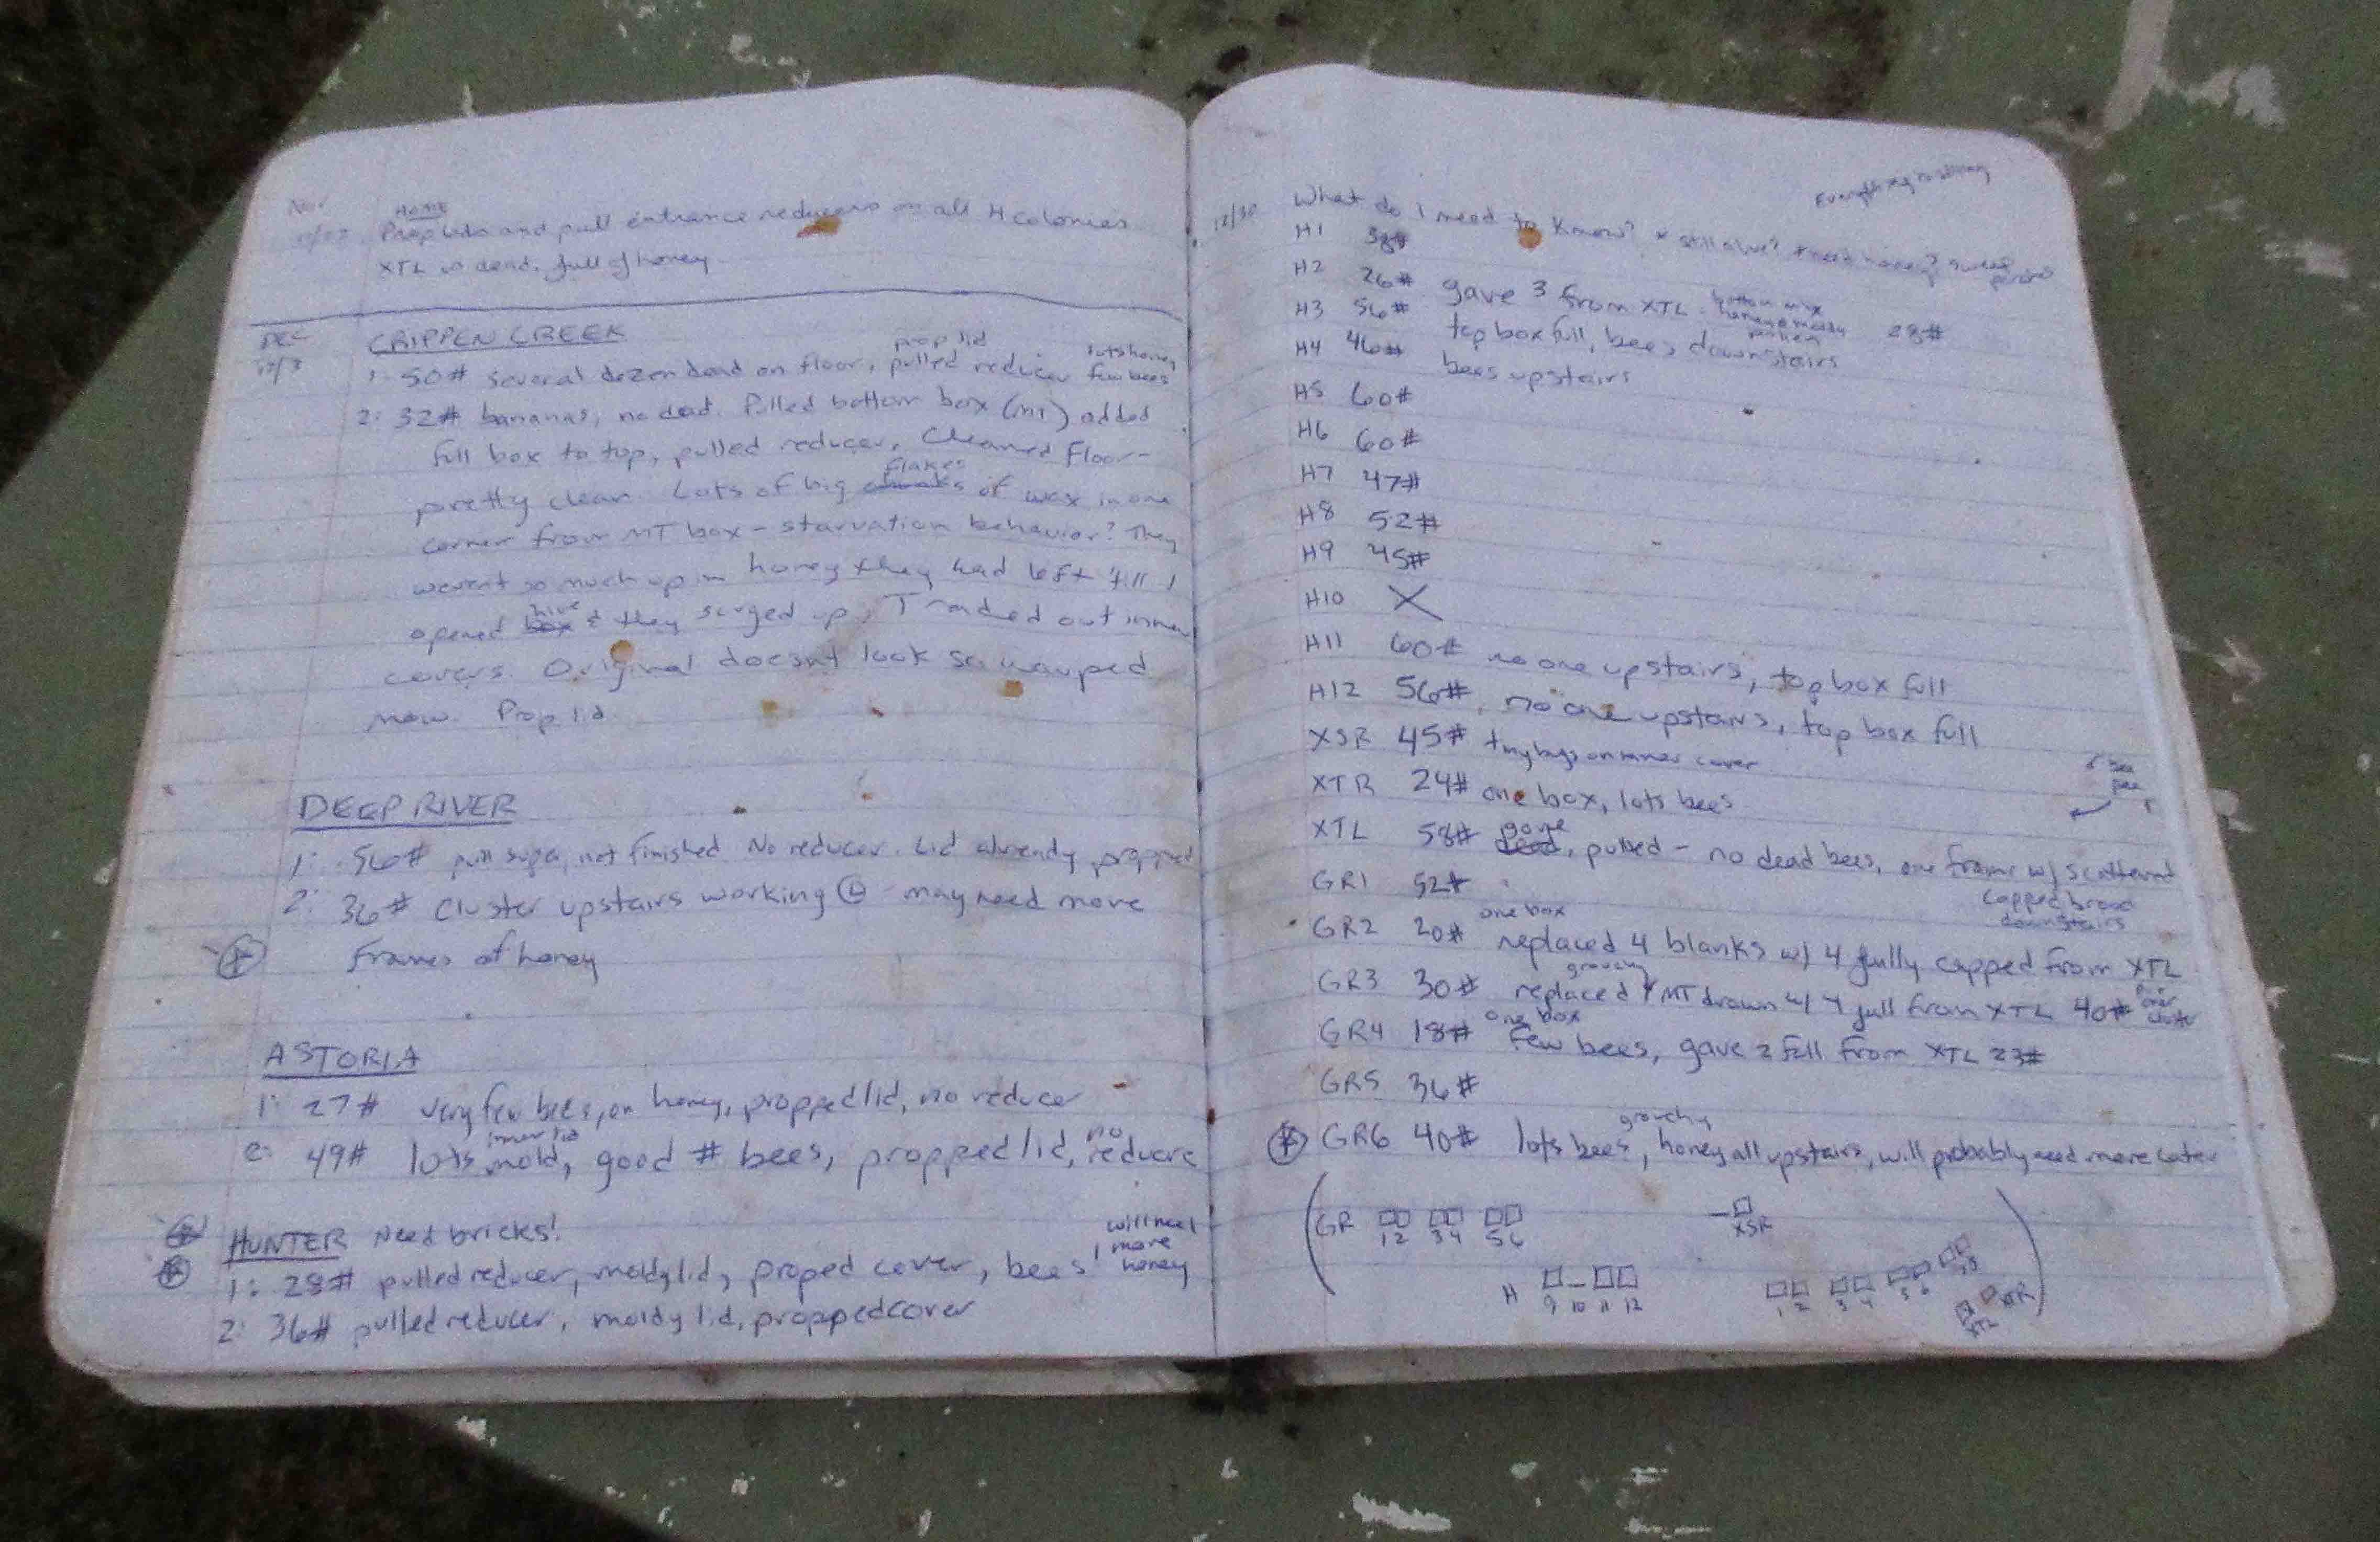 Nov
HOME
Prop lids and pull entrance reducers on all H colonies
XTL is dead, full of honey
DEC
12/3
CRIPPEN CREEK
prop lid
lots honey
1: 50# several dozen dead on floor, pulled reducer few bees
2: 32# bananas, no dead. Pulled bottom box (MT) added
full box to top, pulled reducer. Cleaned floor-
flakes
pretty clean. Lots of big of wax in one
corner from MT box - starvation behavior? They
weren't so much up in honey they had left 'till I
hive
opened box & they surged up. Traded out inner
covers. Original doesnt look so warped
now. Prop lid
DEEP RIVER
1: 56# pull sugar, not finished. No reducer. Lid already propped
2: 36# Cluster upstairs working L - may need more
frames of honey
ASTORIA
1: 27# very few bees, on honey, propped lid, no reducer
inner lid
no
2: 49# lots mold, good # bees, propped lid, reducer
HUNTER Need bricks!
will need
more
honey
1: 28# pulled reducer, moldy lid, proped cover, bees
2: 36# pulled reducer, moldy lid, propped cover
12/30
What do I need to know? * still alive? * need honey?
H1 38#
H2 26# gave 3 from XTL 28#
H3 56# top box full, bees downstairs
H4 46# bees upstairs
H5 60#
H6 60#
H7 47#
H8 52#
H9 45#
H10 X
H11 60# no one upstairs, top box full
H12 56#, no one upstairs, top box full
XSR 45# tiny bugs on inner cover
XTR 24# one box, lots bees
gone
XTL 58# dead, pulled - no dead bees, one frame w/ scattered
capped brood
downstairs
GR1 52#
one box
GR2 20# replaced 4 blanks w/ 4 fully capped from XTL
grouchy
GR3 30# replaced 4 MT drawn w/ 4 full from XTL 40#
one box
GR4 18# few bees, gave 2 full from XTL 23#
GR5 36#
grouchy
GR6 40# lots bees, honey all upstairs, will probably need more later
GR
1 2 3 4 5 6
XSR
H
9 10 11 12
1 2 3 4 5 6 7 8
XTL XTR